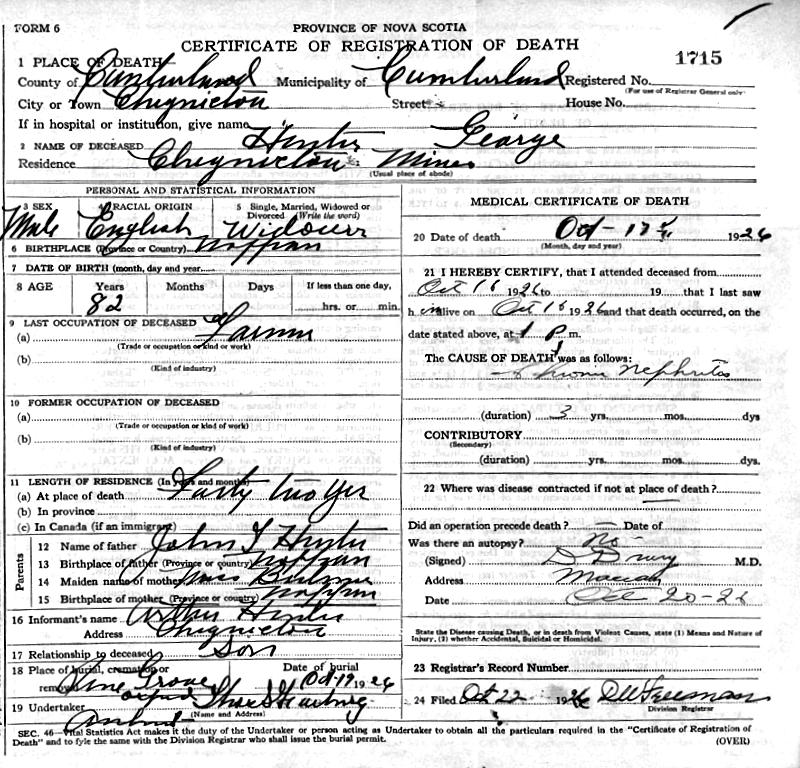 FORM 6
PROVINCE OF NOVA SCOTIA
CERTIFICATE OF REGISTRATION OF DEATH
1715
1 PLACE OF DEATH
County of Cumberland Municipality of Cumberland Registered No.
(For use of Registrar General only)
City or Town Chignecton Street House No.
If in hospital or institution, give name
2 NAME OF DECEASED Hunter George
Residence Chegnecton Mines
(Usual place of abode)
PERSONAL AND STATISTICAL INFORMATION
3 SEX Male
4 RACIAL ORIGIN English
5 Single, Married, Widowed or Divorced (Write the word) Widower
6 BIRTHPLACE (Province or Country) Nappan
7 DATE OF BIRTH (month, day and year)
8 AGE Years Months Days If less than one day,
82 hrs. or min.
9 LAST OCCUPATION OF DECEASED
(a) Farmer
(Trade or occupation or kind of work)
(b)
(Kind of industry)
10 FORMER OCCUPATION OF DECEASED
(a)
(Trade or occupation or kind of work)
(b)
(Kind of industry)
11 LENGTH OF RESIDENCE (In years and months)
(a) At place of death Forty two yrs
(b) In province
(c) In Canada (if an immigrant)
Parents
12 Name of father John Hunter
13 Birthplace of father (Province or country) Nappan
14 Maiden name of mother
15 Birthplace of mother (Province or country) Nappan
16 Informant's name Arthur Hunter
Address Chignecton
17 Relationship to deceased Son
18 Place of burial, cremation or removal Pine Grove Date of burial Oct 19 1926
19 Undertaker
(Name and Address)
Amherst
MEDICAL CERTIFICATE OF DEATH
20 Date of death Oct - 17 1926
(Month, day and year)
21 I HEREBY CERTIFY, that I attended deceased from
Oct 16 1926 to 19 that I last saw
h im alive on Oct 16 1926 and that death occurred, on the
date stated above, at 1 P. m.
The CAUSE OF DEATH was as follows:
Chronic Nephritis
(duration) 3 yrs. mos. dys
CONTRIBUTORY
(Secondary)
(duration) yrs. mos. dys
22 Where was disease contracted if not at place of death?
Did an operation precede death? Date of
Was there an autopsy? no
(Signed) D Drury M.D.
Address Maccan
Date Oct 20-26
State the Disease causing Death, or in death from Violent Causes, state (1) Means and Nature of
Injury, (2) whether Accidental, Suicidal or Homicidal.
23 Registrar's Record Number
24 Filed Oct 22 1926
Division Registrar
SEC. 46—Vital Statistics Act makes it the duty of the Undertaker or person acting as Undertaker to obtain all the particulars required in the "Certificate of Registration of
Death" and to fyle the same with the Division Registrar who shall issue the burial permit.
(OVER)